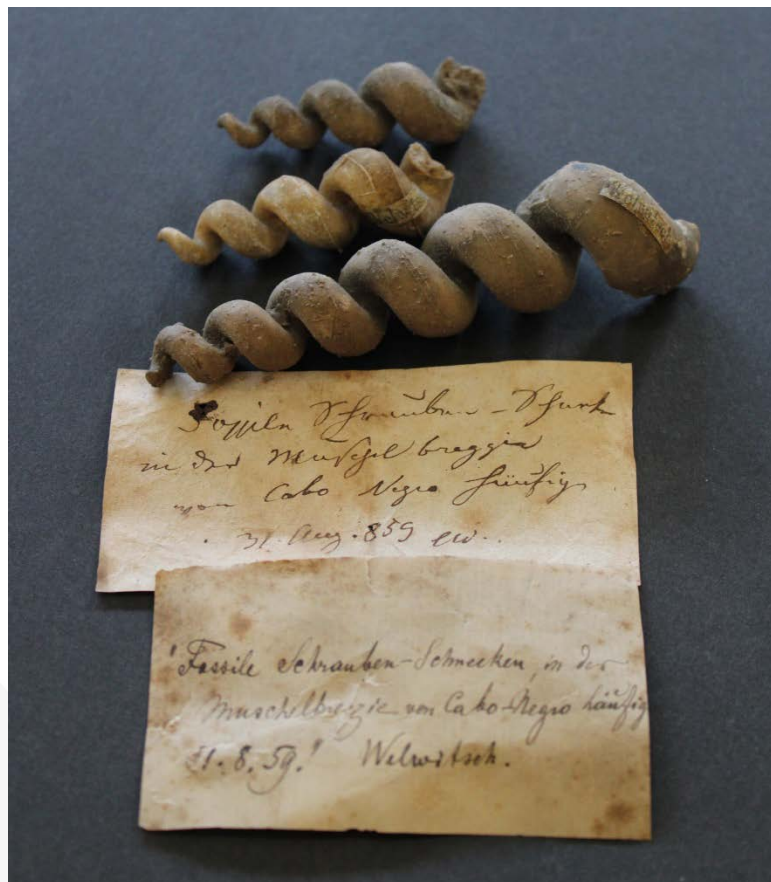 Fossile Schrauben-
in der Muschel breggia
von Cabo Negro häufig
31. Aug. 859
"Fossile Schrauben-Schnecken, in der
Muschelbreggie von Cabo-Negro häufig
31. 8. 59." Welwitsch.